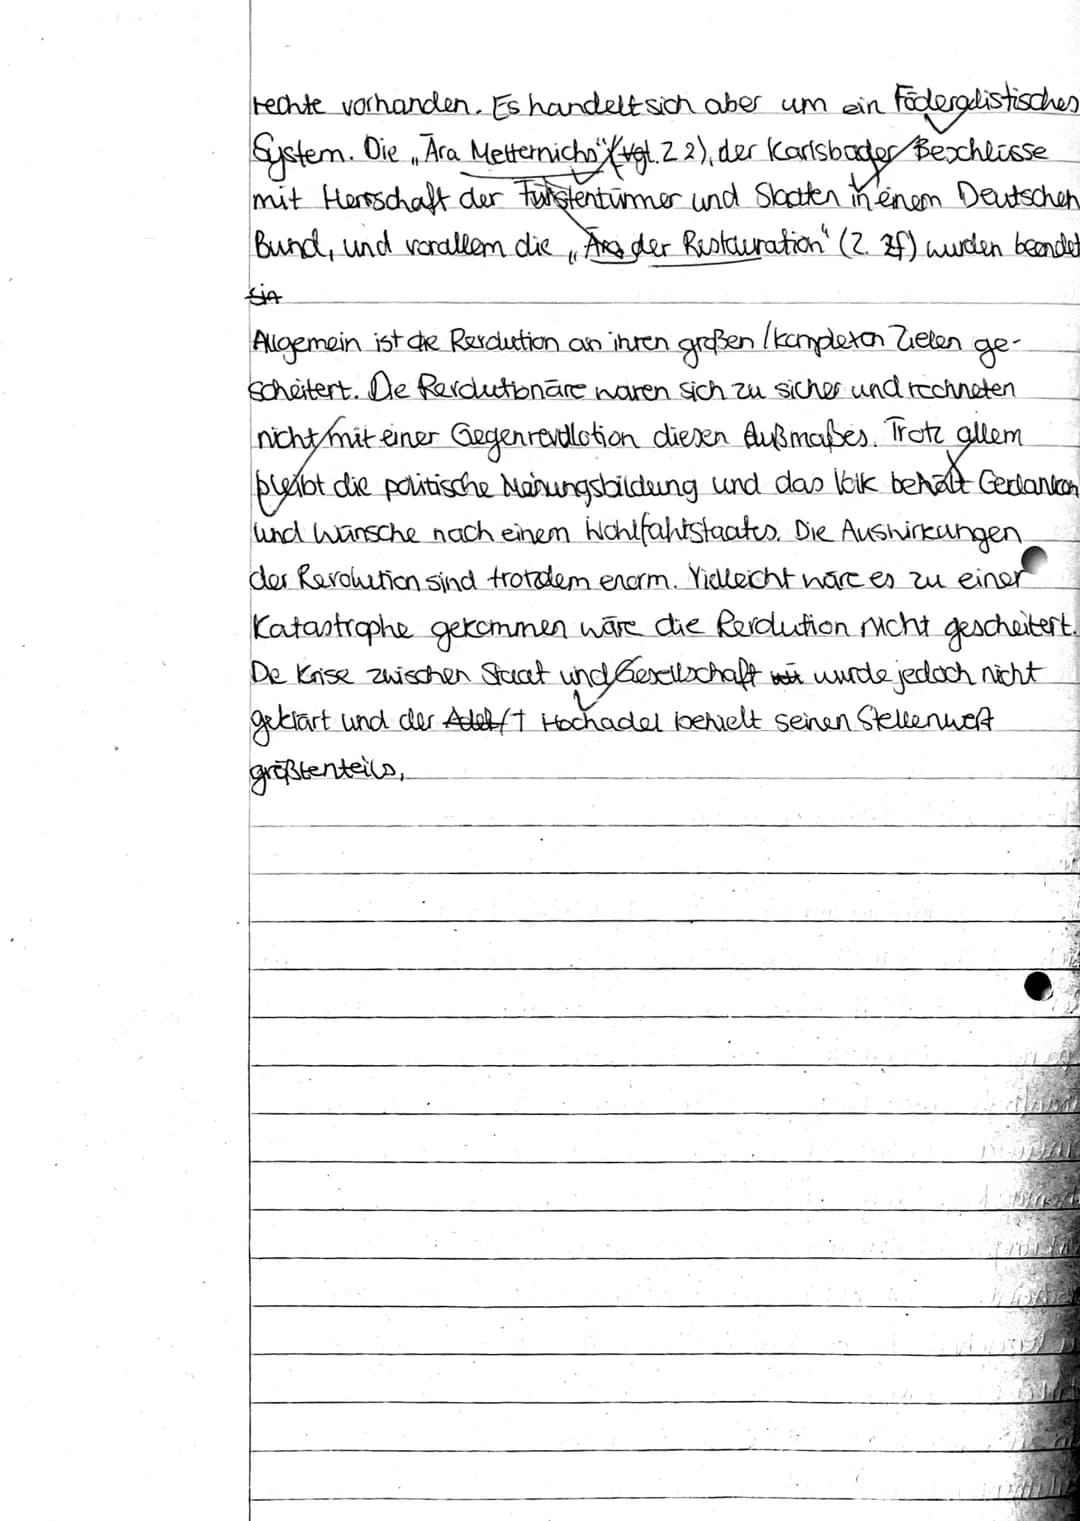 rechte vorhanden. Es handelt sich aber um ein Föderalistisches
System. Die „Ära Metternichs" (vgl. Z 2), der Karlsbader Beschlüsse
mit Herrschaft der Fürstentümer und Staaten in einem Deutschen
Bund, und vorallem die „Ära der Restauration" (Z. 2f) wurden beendet
Allgemein ist die Revolution an ihren großen / komplexen Zielen ge-
scheitert. Die Revolutionäre waren sich zu sicher und rechneten
nicht mit einer Gegenrevolution diesen Außmaßes. Trotz allem
bleibt die politische Meinungsbildung und das Volk behält Gedanken
und Wünsche nach einem Wohlfahrtstaates. Die Auswirkungen
der Revolution sind trotzdem enorm. Vielleicht wäre es zu einer
Katastrophe gekommen wäre die Revolution nicht gescheitert.
Die Krise zwischen Staat und Gesellschaft wurde jedoch nicht
geklärt und der Adel/ Hochadel behielt seinen Stellenwert
größtenteils.